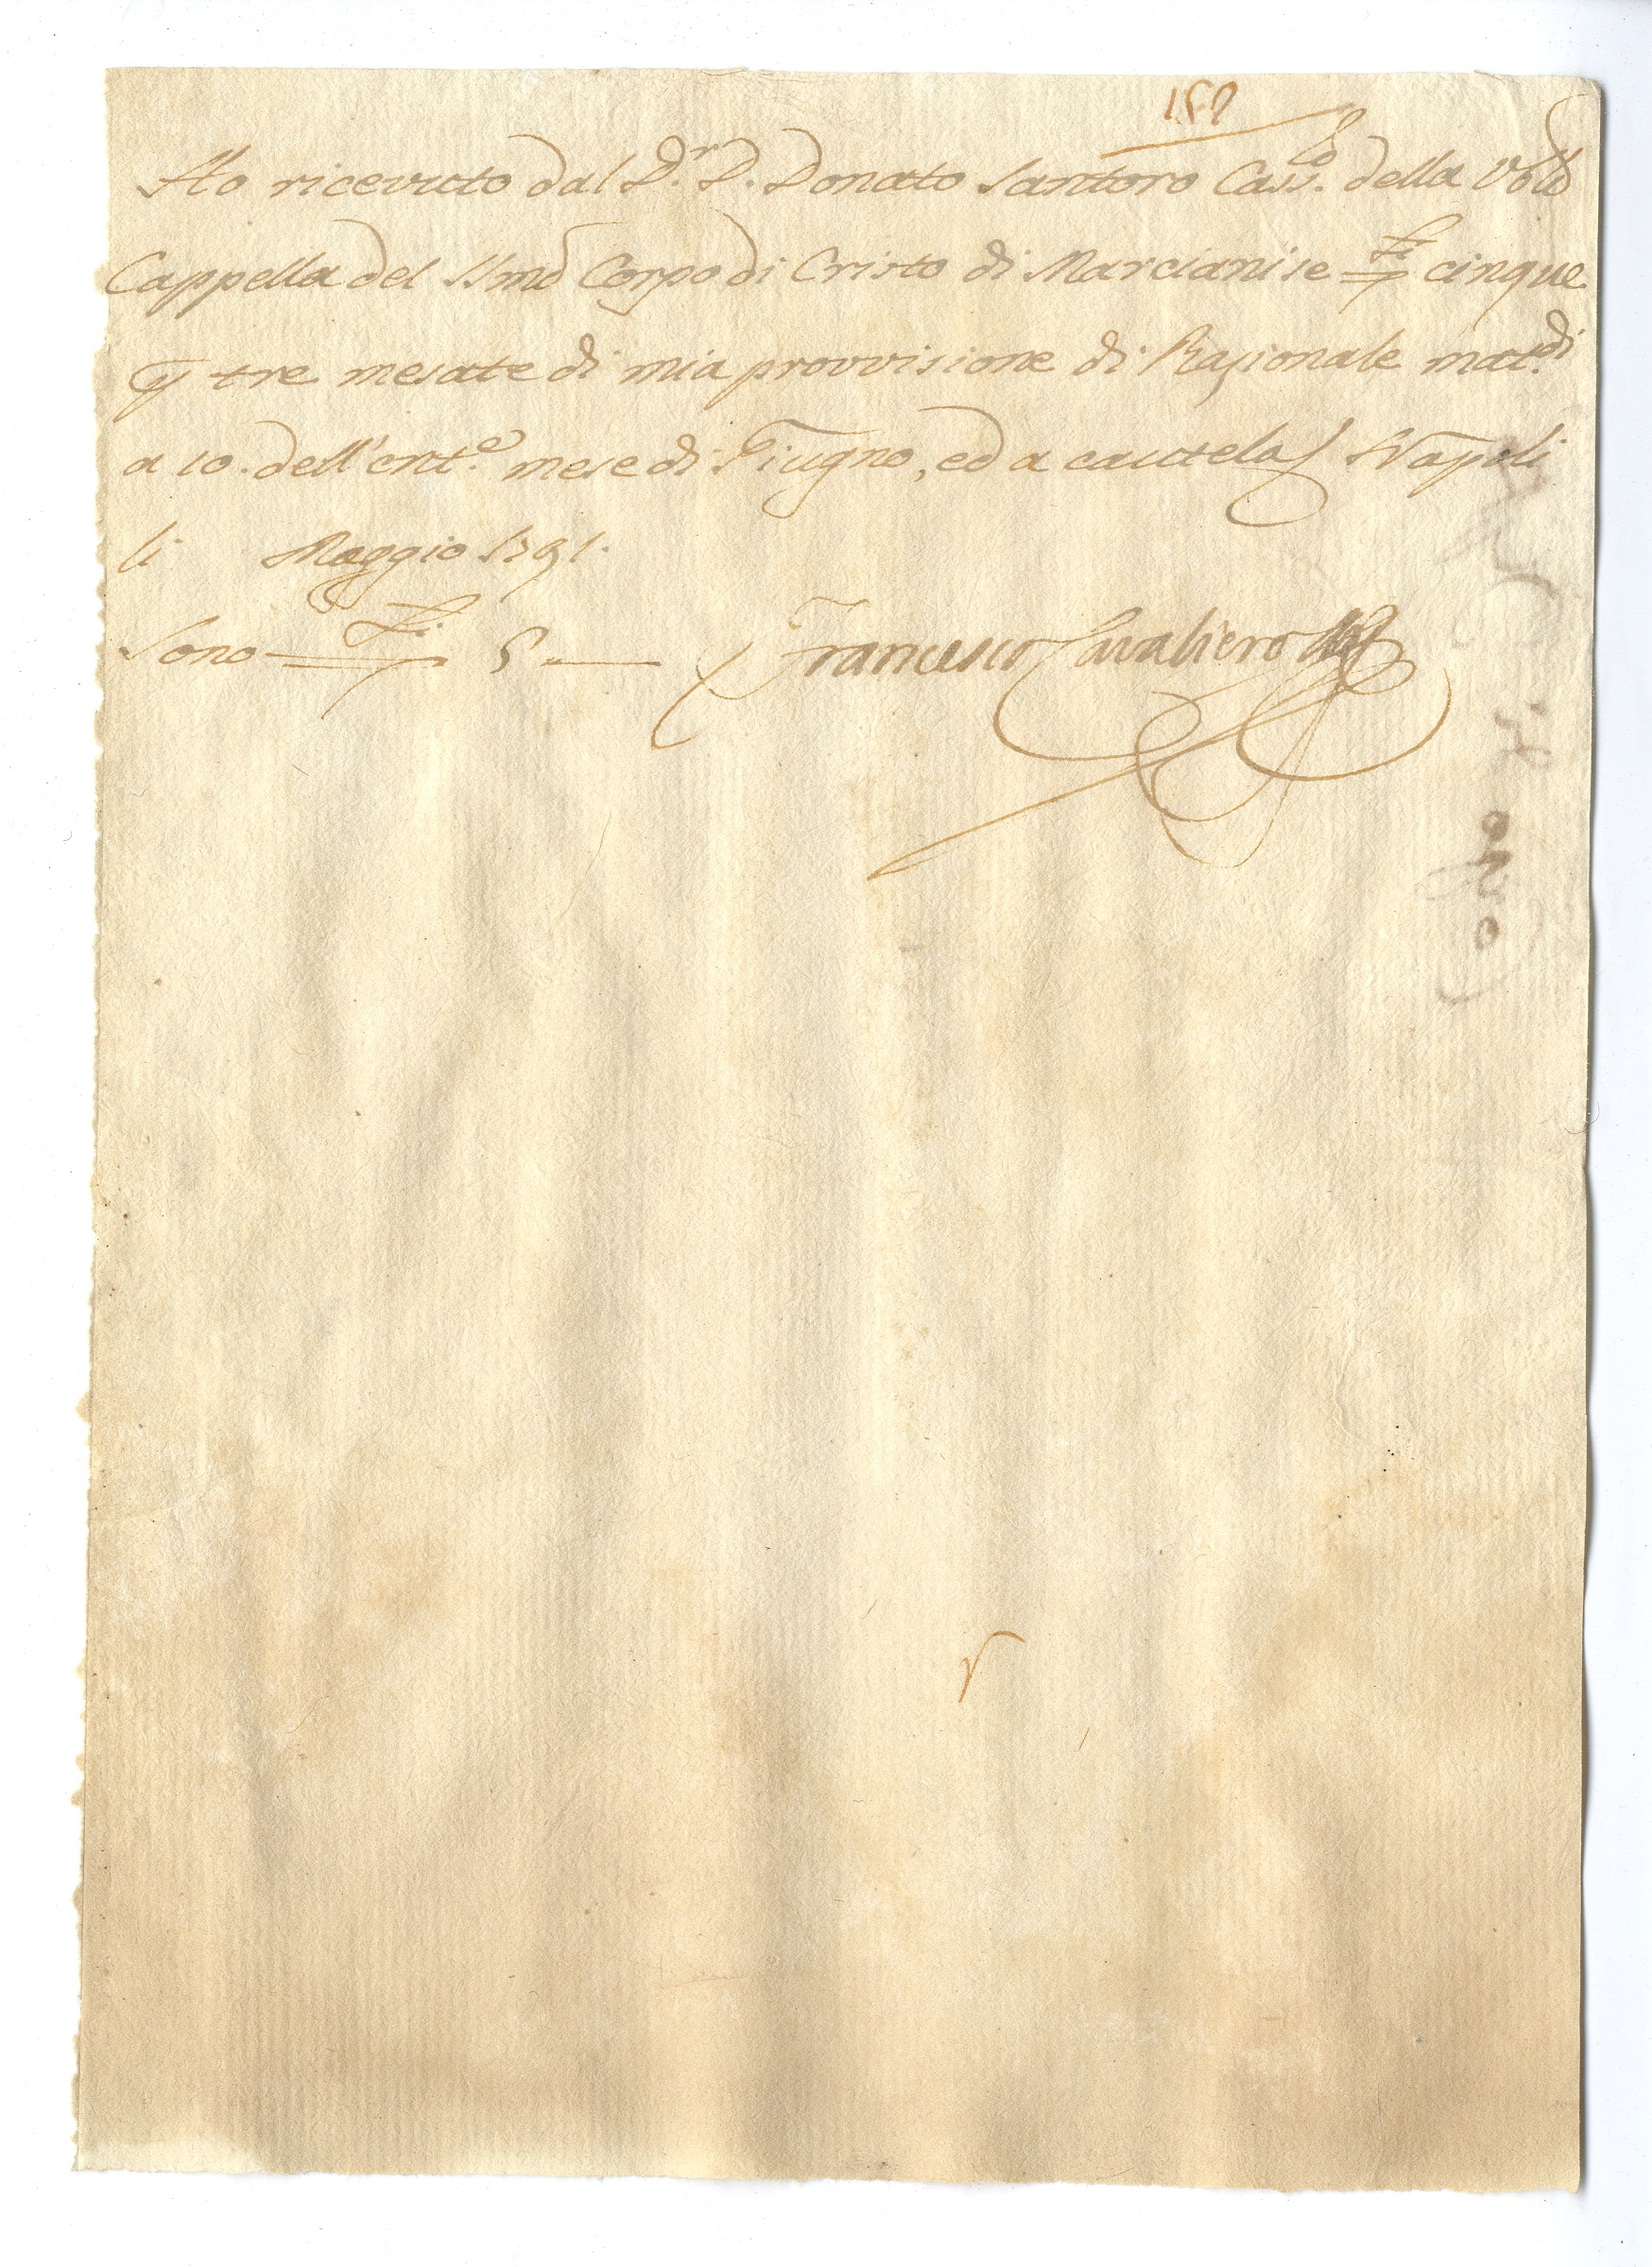 Ho ricevuto dal D.r D. Donato Santoro Cass.o della
Cappella del SSmo Corpo di Cristo di Marcianise cinque
tre mesate di mia provvisione di Razionale mat.di
a 10. dell'ent.e mese di Giugno, ed a cautela Napoli
li Maggio 1791.
Sono 5 Francesco Cavaliero